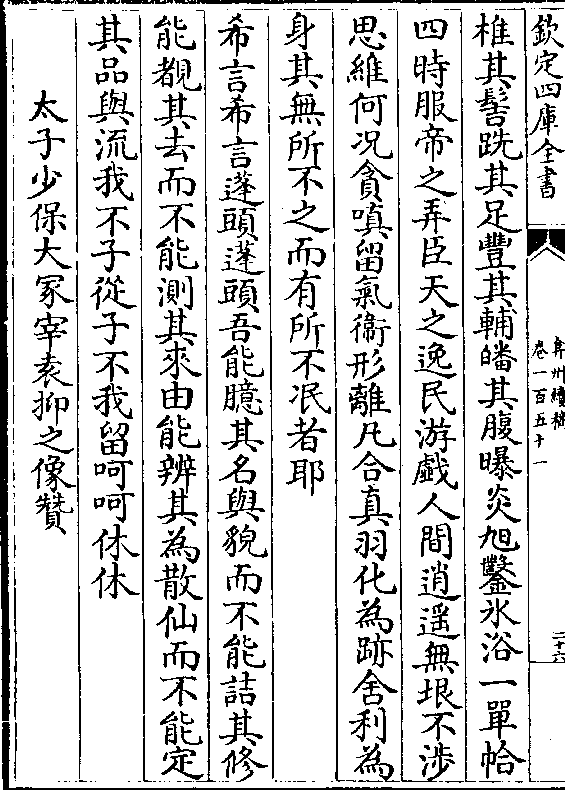 欽定四庫全書
弇州續稿
卷一百五十一
二十六
椎其髻跣其足豐其輔皤其腹曝炎旭鑿氷浴一單帢
四時服帝之弄臣天之逸民游戲人間逍遥無垠不涉
思維何况貪嗔留氣衞形離凡合真羽化為跡舍利為
身其無所不之而有所不泯者耶
希言希言蓬頭蓬頭吾能臆其名與貌而不能詰其修
能覩其去而不能測其來由能辨其為散仙而不能定
其品與流我不子從子不我留呵呵休休
太子少保大冢宰袁抑之像贊